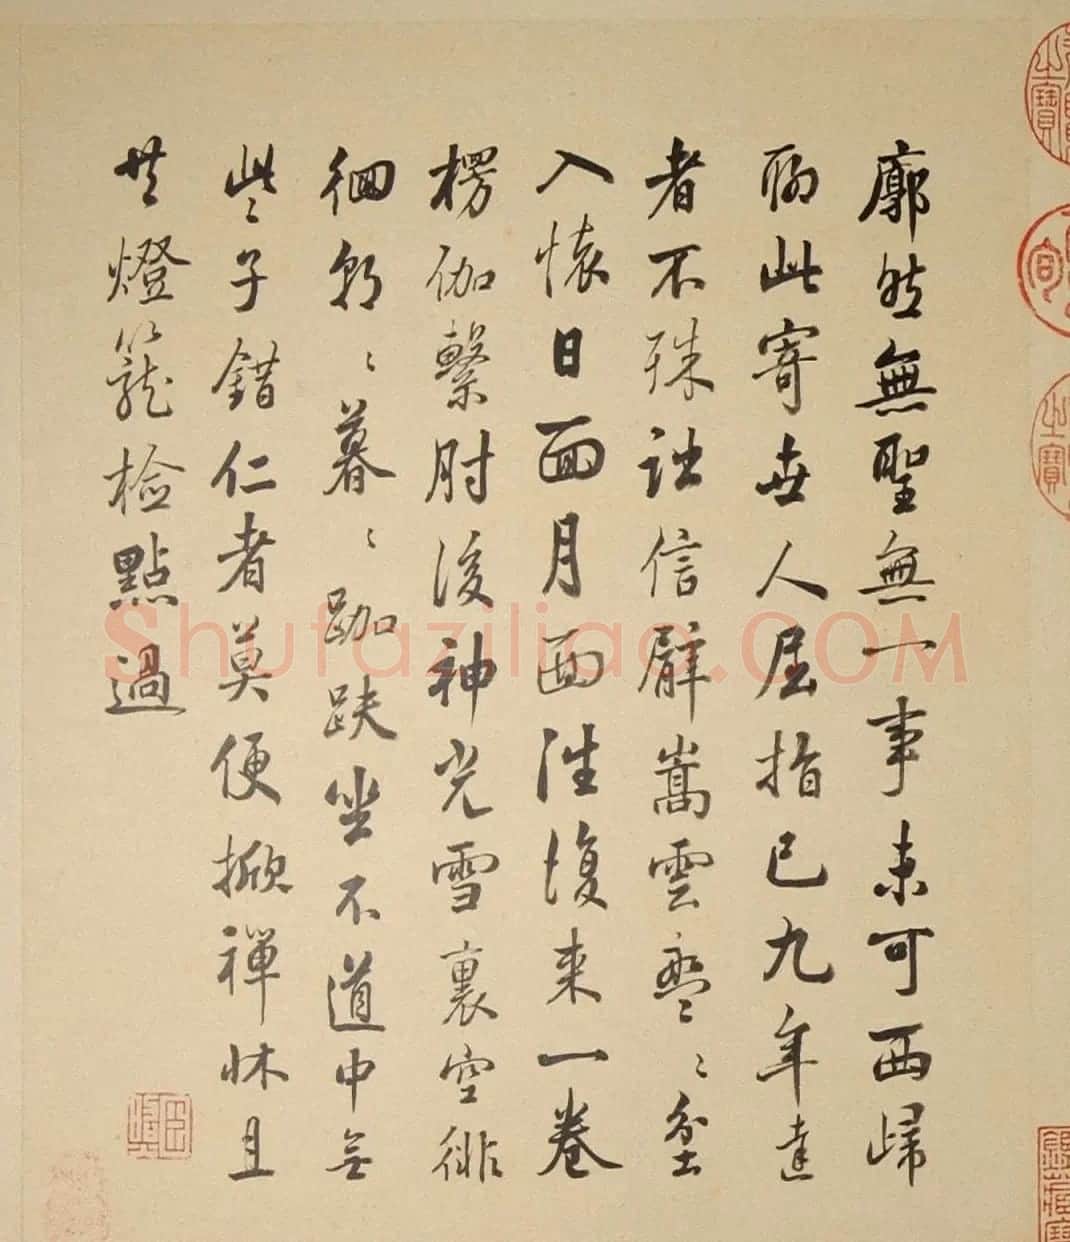 廓然無聖無一事未可西歸
聊此寄世人屈指已九年達
者不殊詘信臂嵩雲盤〻坌
入懷日面月面徃復来一卷
楞伽繫肘後神光雪裏空徘
徊朝〻暮〻跏趺坐不道中無
些子錯仁者莫便掀禪牀且
共燈籠檢點過
Shufaziliao.COM